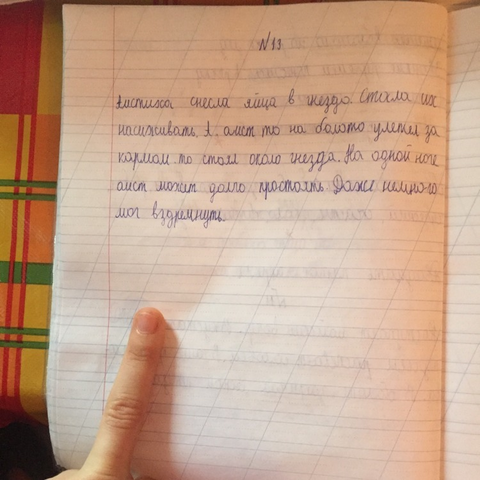 №13
Аистиха снесла яйца в гнездо. Стала их
насиживать. А аист то на болото улетел за
кормом то стоял около гнезда. На одной ноге
аист может долго простоять. Даже немного
мог вздремнуть.